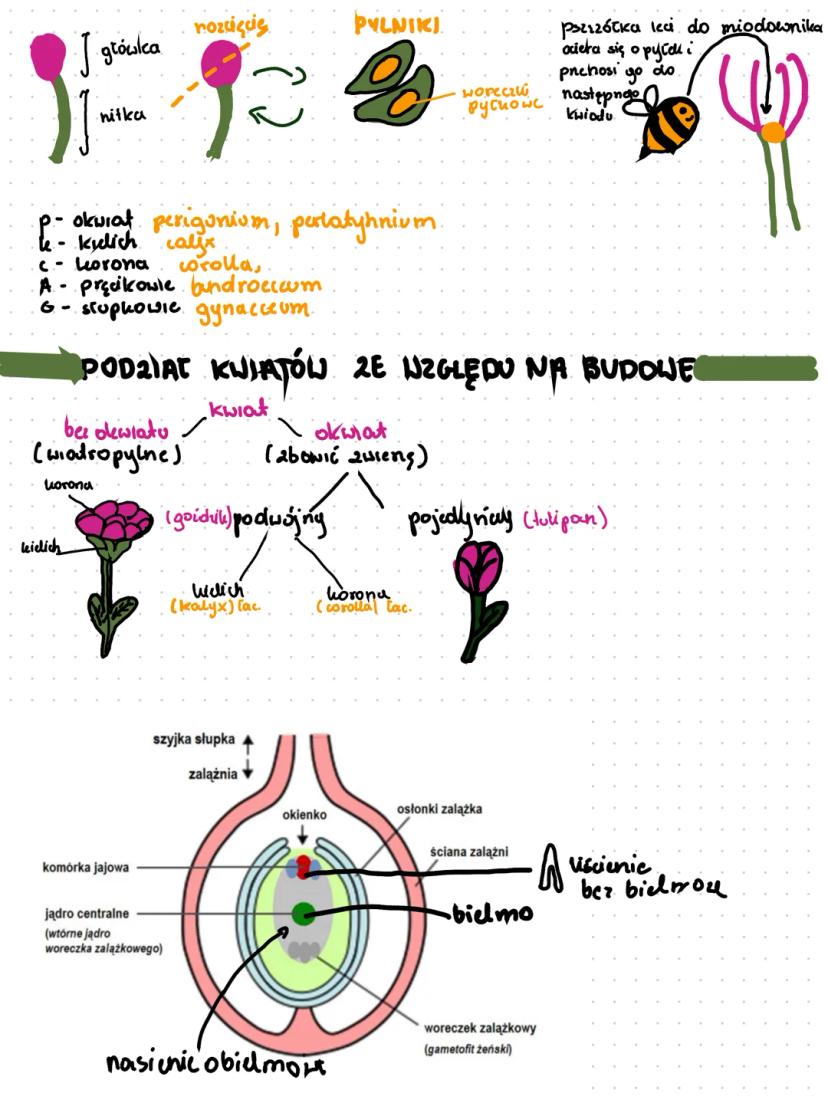 główka
nitka
rozcięcie
PYLNIKI
woreczki
pyłkowe
pszczółka leci do miodownika
ociera się o pyłek i
pnehosi go do
następnego
kwiatu
p - okwiat perigonium,
k - kielich calyx
c - korona corolla,
A - pręcikowie
G - słupkowie gynaeceum
PODZIAŁ KWIATÓW ZE WZGLĘDU NA BUDOWE
kwiat
bez okwiatu
(wiatropylne)
okwiat
(zbowić zwierzę)
korona
kielich
(goździk) podwójny
pojedyńczy (tulipan)
kielich
(kalyx) łac.
korona
(corolla) łac.
szyjka słupka
zalążnia
okienko
osłonki zalążka
ściana zalążni
komórka jajowa
liścienie
bez bielmowe
jądro centralne
(wtórne jądro
woreczka zalążkowego)
bielmo
woreczek zalążkowy
(gametofit żeński)
nasienie obielmowe